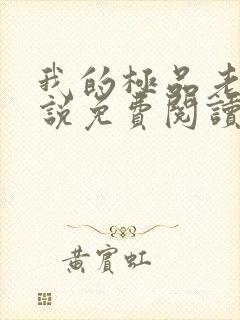 我的極品老
說免費閱讀
黃賓虹